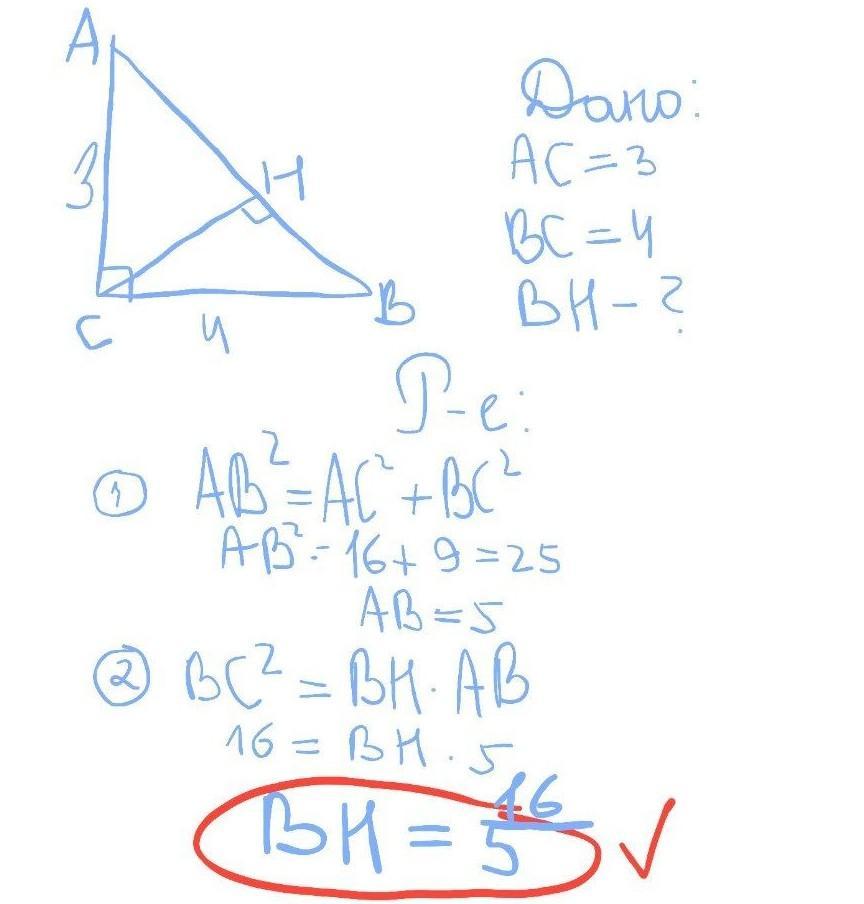 A
3
H
C
4
B
Дано:
AC = 3
BC = 4
BH - ?
Р-е:
① AB² = AC² + BC²
AB² = 16 + 9 = 25
AB = 5
② BC² = BH · AB
16 = BH · 5
BH = 16/5 ✓